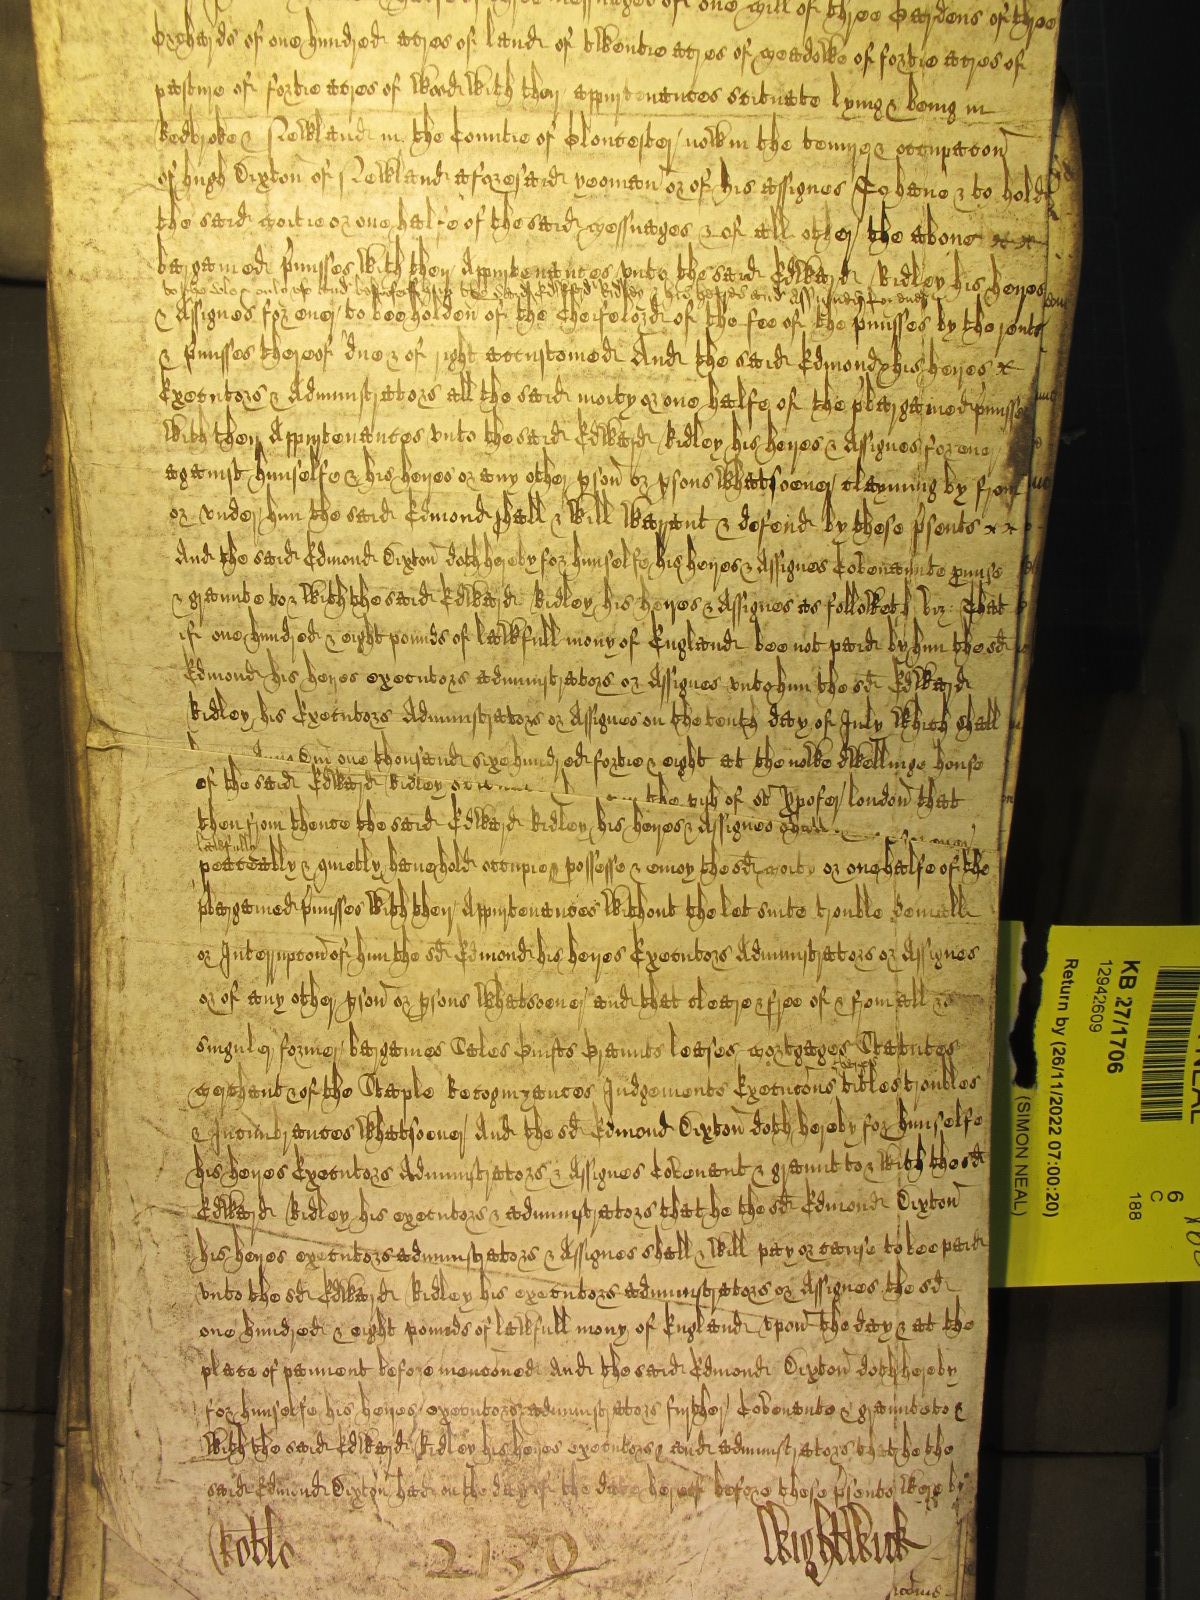 messuages of one mill of three Gardens of three
Orchards of one hundred acres of land of twentie acres of meadowe of fortie acres of
pasture of fortie acres of wood with ther appurtenances scituate lying & being in
& Newland in the Countie of Gloucester now in the tenure & occupacon
of Hugh Dixton of Newland aforesaid yeoman or of his assignes To have & to hold
the said moitie or one halfe of the said messuages & of all other the above
bargained pmisses with ther Appurtenances unto the said Edward Ridley his heyres
to the sole only use and behoofe of him the said Edward Ridley & his heyres and Assignes for ever
& Assignes for ever to bee holden of the Cheife lord of the fee of the pmisses by the rents
& pmisses thereof due & of right accustomed And the said Edmond & his heyres
Executors & Administrators all the said moity or one halfe of the pbargained pmisses
with ther Appurtenances unto the said Edward Ridley his heyres & Assignes for ever
against himselfe & his heyres or any other pson or psons whatsoever clayming by from
or under him the said Edmond shall & will warrant & defend by these psents
And the said Edmond Dixton doth hereby for himselfe his heyres & Assignes Covenante pmiss
& graunte to & with the said Edward Ridley his heyres & Assignes as followeth viz. That
if one hundred & eight pounds of lawfull mony of England bee not paid by him the sd
Edmond his heyres executors administrators or Assignes unto him the sd Edward
Ridley his Executors Administrators or Assignes on the tenth day of July which shall
Dni one thousand sixe hundred fortie & eight at the nowe dwellinge house
of the said Edward Ridley the pish of St Xpofer london that
then from thence the said Edward Ridley his heyres & Assignes shall
lawfully
peaceably & quietly have hold occupie possesse & enioy the sd moity or one halfe of the
pbargained pmisses with ther Appurtenances without the let suite trouble deniall
or Interrupcon of him the sd Edmond his heyres Executors Administrators or Assignes
or of any other pson or psons whatsoever and that cleare & free of & from all &
singuler former bargaines Sales Guifts Graunts leases mortgages Statutes
merchant & of the Staple Recognizances Judgements Execucons titles troubles
& Incumbrances whatsoever And the sd Edmond Dixton doth hereby for himselfe
his heyres Executors Administrators & Assignes Covenant & graunt to & with the sd
Edward Ridley his executors & administrators that he the sd Edmond Dixton
his heyres executors administrators & Assignes shall & will pay or cause to bee paid
unto the sd Edward Ridley his executors administrators or Assignes the sd
one hundred & eight pounds of lawfull mony of England upon the day & at the
place of paiment before mencioned And the said Edmond Dixton doth hereby
for himselfe his heyres executors administrators further Covenante & graunte to &
with the said Edward Ridley his heyres executors & and administrators that he the
said Edmond Dixton had on the day of the date hereof before these psents were by
2130
Wightwick
KB 27/1706
12942609
Return by (26/11/2022 07:00:20)
(SIMON NEAL)
6
C
188